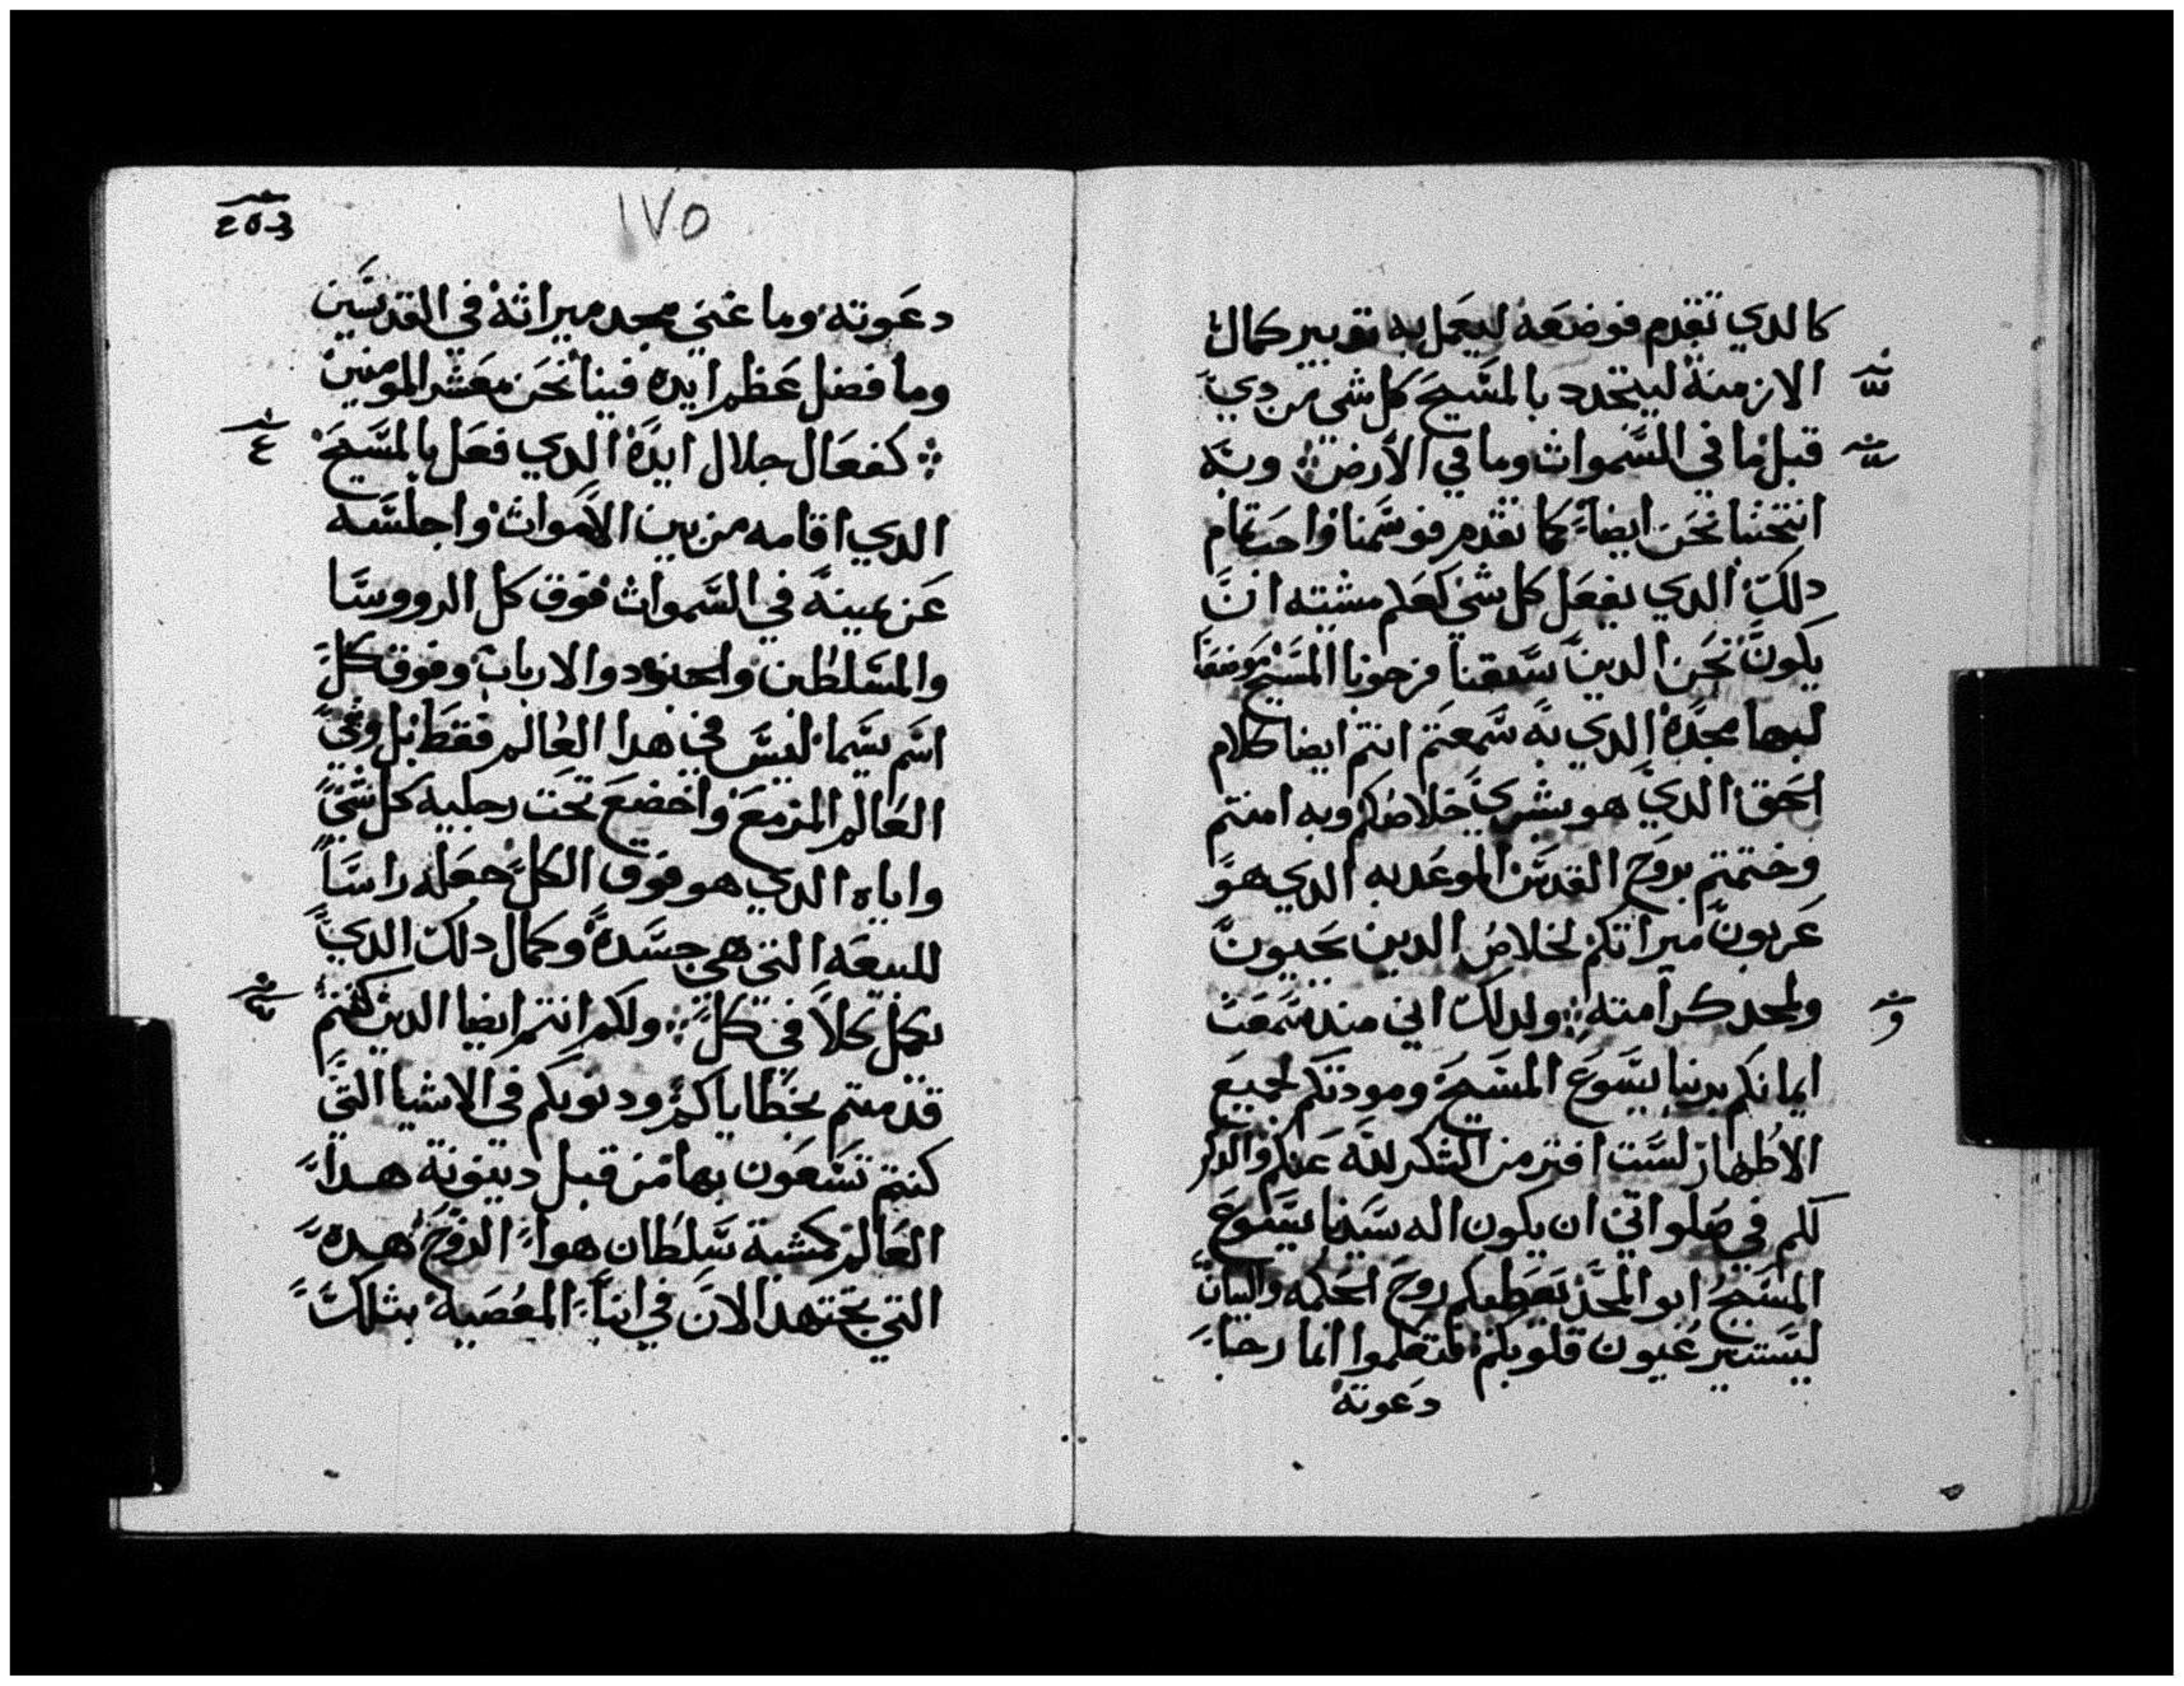 كالدي تقدم فوضعه ليعمل به تدبير كمال
الازمنة ليتجدد بالمسيح كل شي من دي
قبل ما في السموات وما في الارض وبه
انتخبنا نحن ايضا كما تقدم فوسمنا واحب تمام
دلك الدي يفعل كل شي كعلم مشيته ان
يكون نحن الدين سبقنا فرجونا المسيح موضعا
لبها مجده الدي به سمعتم انتم ايضا كلام
الحق الدي هو بشري خلاصكم وبه امنتم
وختمتم بروح القدس الموعد به الدي هو
عربون ميراثكم لخلاص الدين يحيون
ولمجد كرامته ولدلك اني مند سمعت
ايمانكم بربنا يسوع المسيح ومودتكم لجميع
الاطهار لست افتر من الشكر لله عنكم والدكر
لكم في صلواتي ان يكون اله سيدنا يسوع
المسيح ابو المجد يعطيكم روح الحكمه والبيان
ليستنير عيون قلوبكم لتعلموا انما رجا
دعوته
و
١٧٥
دعوته وما غني مجد ميراثه في القديسين
وما فضل عظم ايده فينا نحن معشر المومنين
كفعال جلال ايده الدي فعل بالمسيح
الدي اقامه من بين الاموات واجلسه
عن يمينه في السموات فوق كل الرووسا
والمسلطين والجنود والارباب وفوق كل
اسم يسما ليس في هدا العالم فقط بل وفي
العالم المزمع واخضع تحت رجليه كل شي
واياه الدي هو فوق الكل جعله راسا
للبيعه التي هي جسده وكمال دلك الدي
يكمل كلا في كل ولكم انتم ايضا الدين كنتم
قد متم بخطاياكم ودنوبكم في الاشيا التي
كنتم تسعون بها من قبل دينونة هدا
العالم كمشية سلطان هوا الروح هده
التي تجتهد الان في ابنا المعصية بتلك